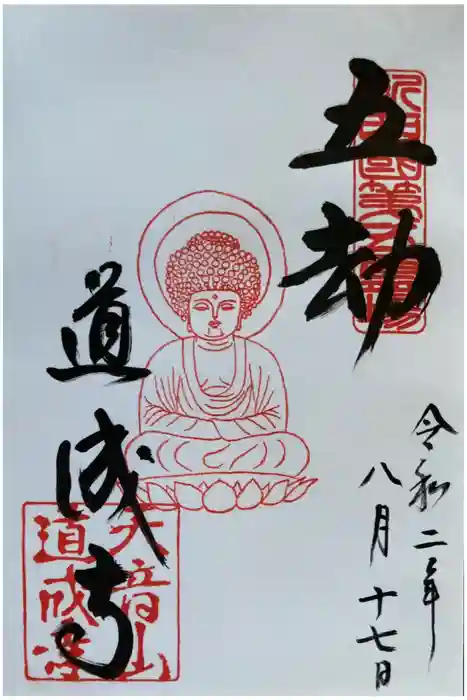 五劫
道成寺
天音山
道成寺
令和二年
八月十七日